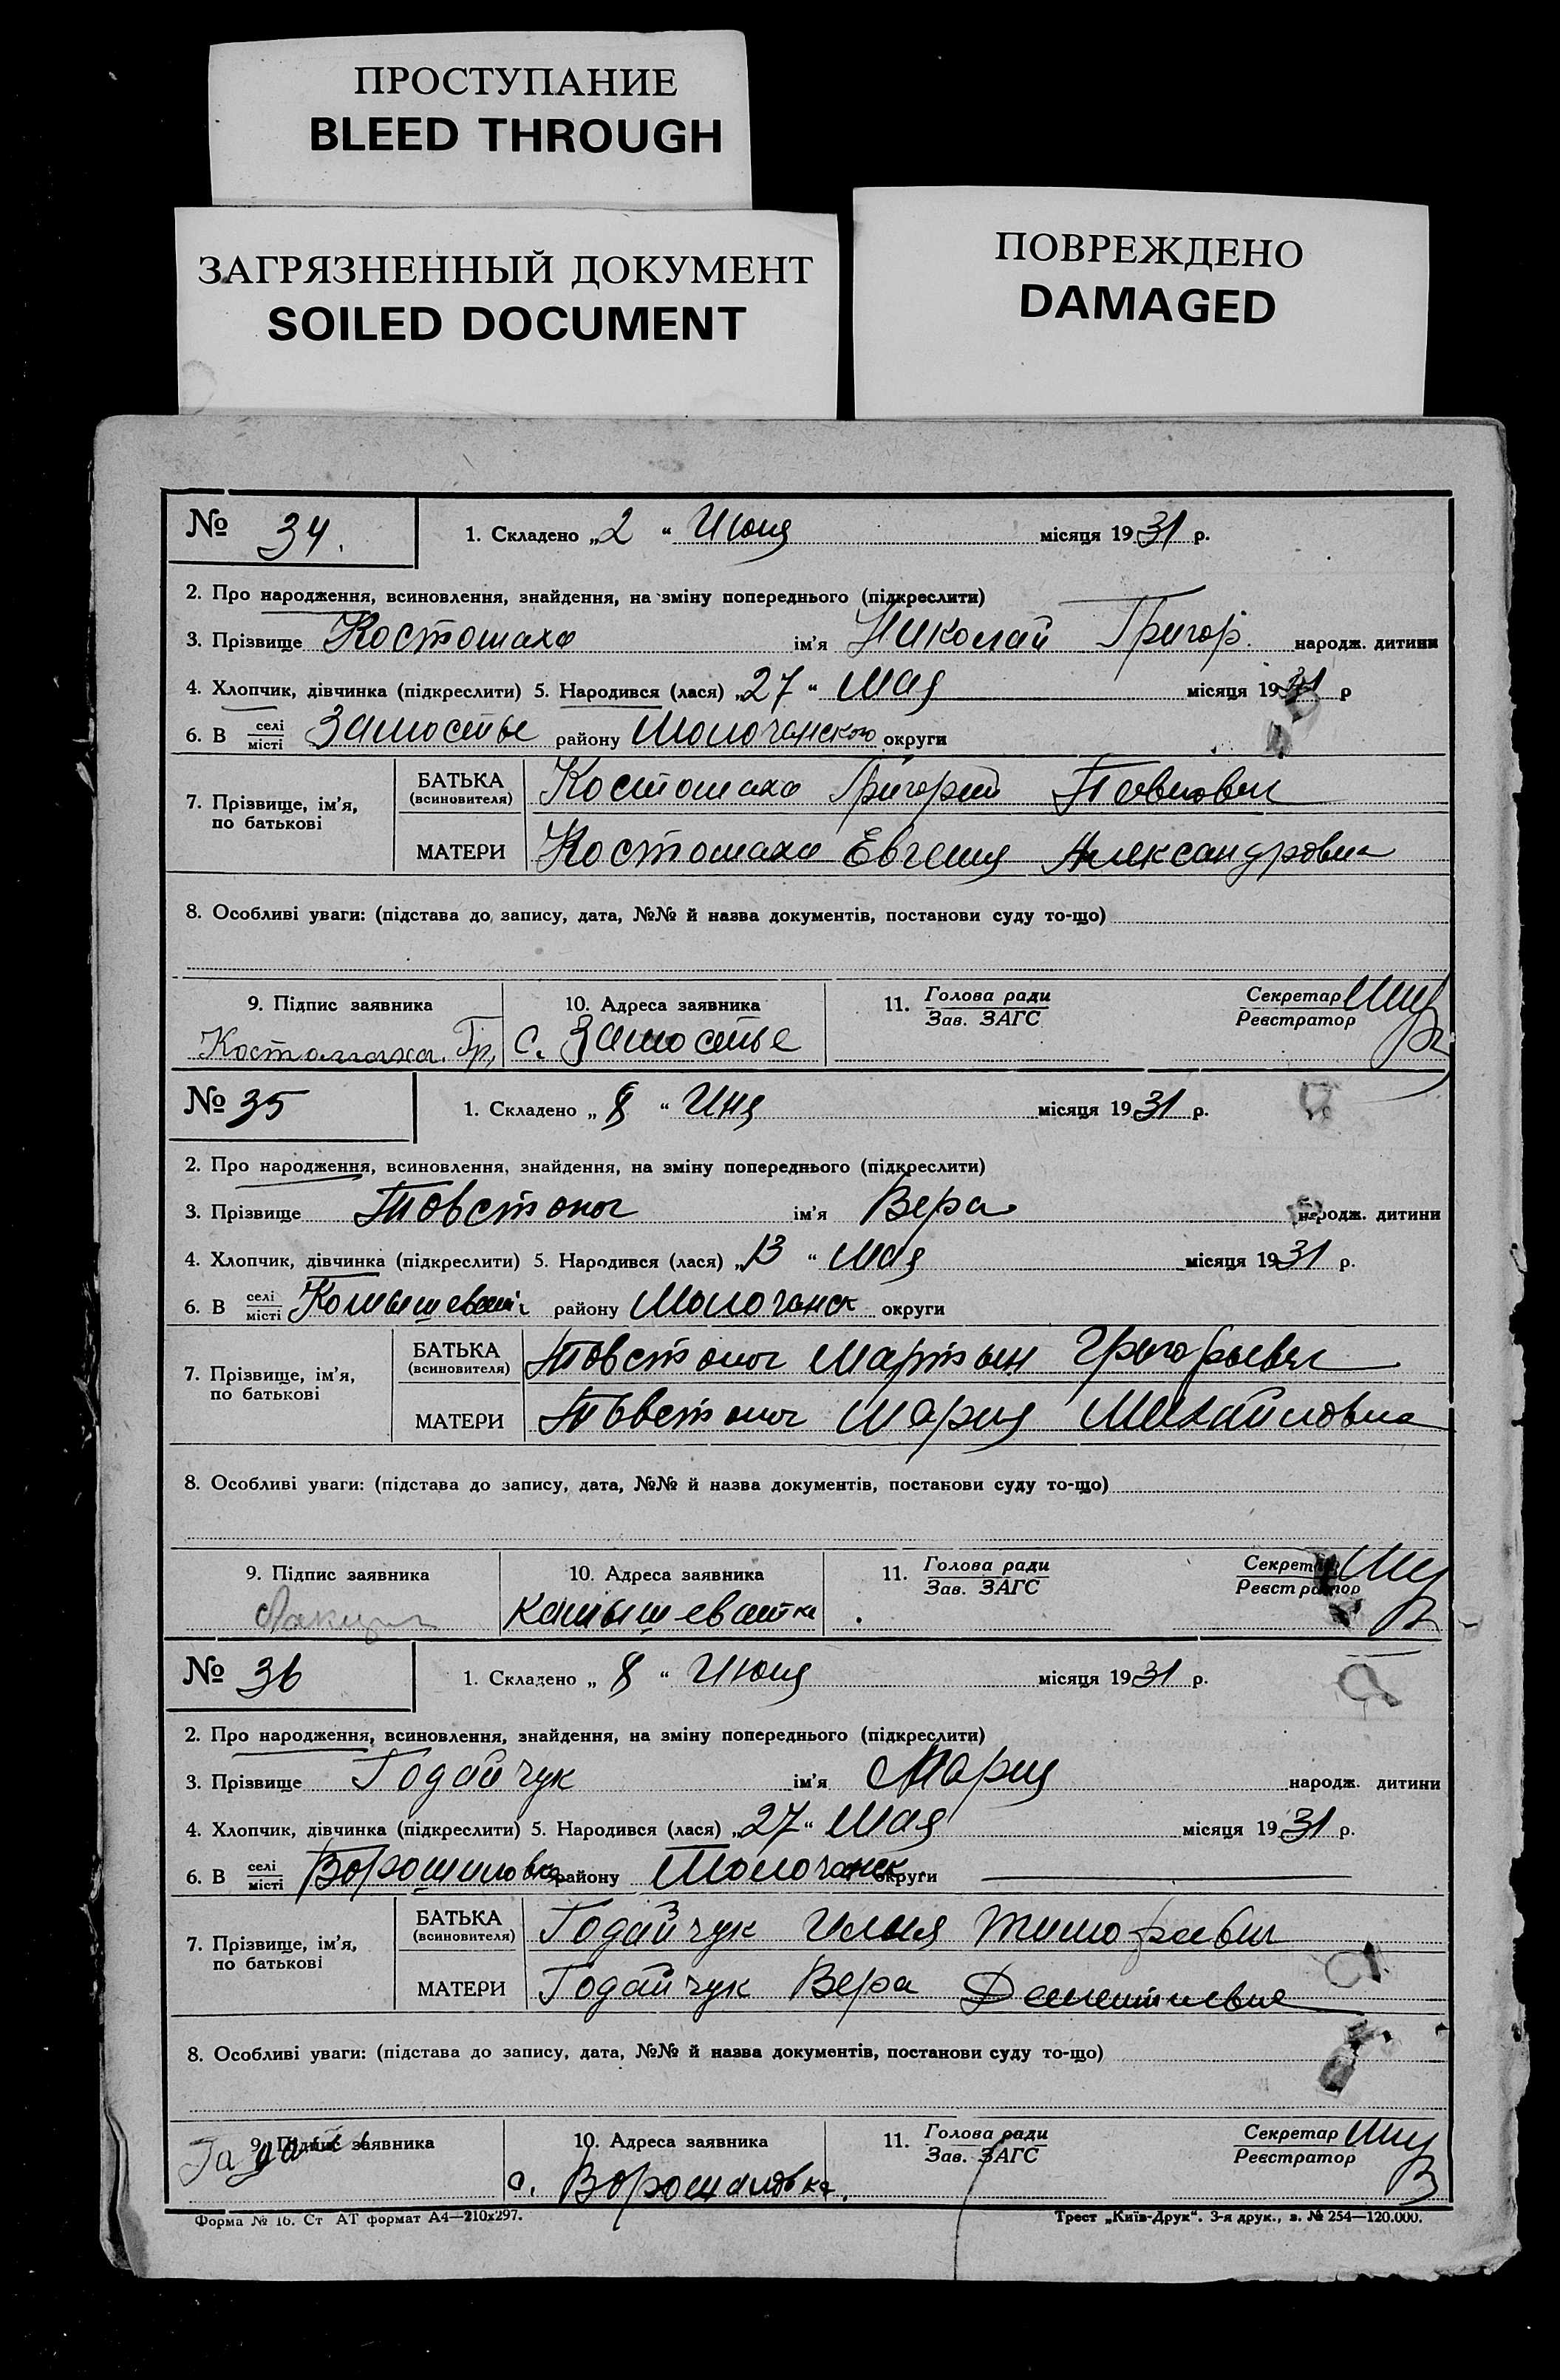 ПРОСТУПАНИЕ
BLEED THROUGH
ЗАГРЯЗНЕННЫЙ ДОКУМЕНТ
SOILED DOCUMENT
ПОВРЕЖДЕНО
DAMAGED
№ 34. 1. Складено „2“ Июня місяця 1931 р.
2. Про народження, всиновлення, знайдення, на зміну попереднього (підкреслити)
3. Прізвище Костомаха ім'я Николай Григор. народж. дитини
4. Хлопчик, дівчинка (підкреслити) 5. Народився (лася) „27“ Мая місяця 1931 р
6. В селі місті Замостье району Молочанского округи
7. Прізвище, ім'я, по батькові
БАТЬКА (всиновителя) Костомаха Григорий Павлович
МАТЕРИ Костомаха Евгения Александровна
8. Особливі уваги: (підстава до запису, дата, №№ й назва документів, постанови суду то-що)
9. Підпис заявника 10. Адреса заявника 11. Голова ради Зав. ЗАГС Секретар Реєстратор
Костомаха. Гр. с. Замостье
№ 35 1. Складено „8“ Иня місяця 1931 р.
2. Про народження, всиновлення, знайдення, на зміну попереднього (підкреслити)
3. Прізвище Товстоног ім'я Вера народж. дитини
4. Хлопчик, дівчинка (підкреслити) 5. Народився (лася) „13“ Мая місяця 1931 р.
6. В селі місті району Молочанск округи
7. Прізвище, ім'я, по батькові
БАТЬКА (всиновителя) Товстоног Мартын Григорьевич
МАТЕРИ Товстоног Мария Михайловна
8. Особливі уваги: (підстава до запису, дата, №№ й назва документів, постанови суду то-що)
9. Підпис заявника 10. Адреса заявника 11. Голова ради Зав. ЗАГС Секретар Реєстратор
Камышеватка
№ 36 1. Складено „8“ Июня місяця 1931 р.
2. Про народження, всиновлення, знайдення, на зміну попереднього (підкреслити)
3. Прізвище Годайчук ім'я Мария народж. дитини
4. Хлопчик, дівчинка (підкреслити) 5. Народився (лася) „27“ Мая місяця 1931 р.
6. В селі місті Ворошиловка району Молочанск округи
7. Прізвище, ім'я, по батькові
БАТЬКА (всиновителя) Годайчук Илья Тимофеевич
МАТЕРИ Годайчук Вера Дементиевна
8. Особливі уваги: (підстава до запису, дата, №№ й назва документів, постанови суду то-що)
9. Підпис заявника 10. Адреса заявника 11. Голова ради Зав. ЗАГС Секретар Реєстратор
с. Ворошиловка.
Форма № 16. Ст АТ формат А4—210x297. Трест „Київ-Друк“. 3-я друк., з. № 254—120.000.